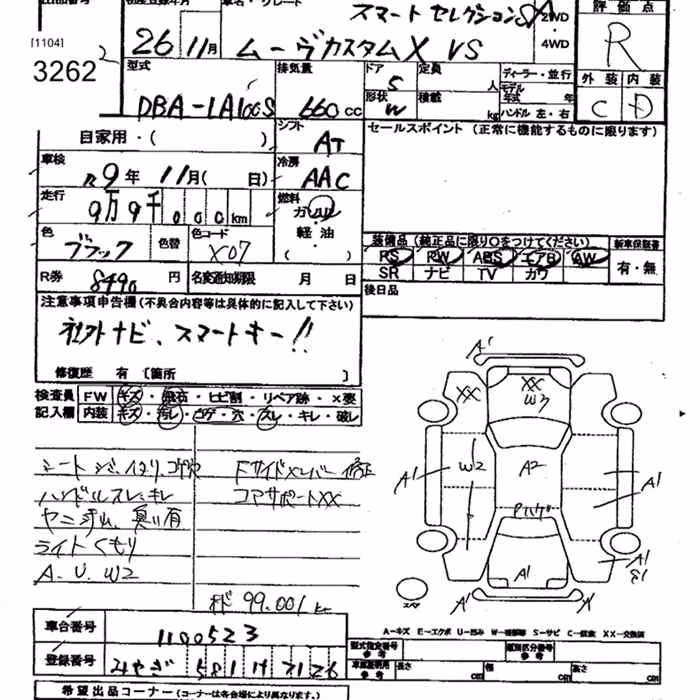 スマート セレクションSA
[1104]
3262
26 年 11月
ムーヴカスタムX VS
2WD
4WD
評価点
R
型式
DBA-LA100S
排気量
660 cc
ドア
5
定員
人
ディーラー・並行
モデル
年式 年
ハンドル 左・右
形状
W
積載
kg
外装 内装
C D
自家用・(
シフト
AT
セールスポイント (正常に機能するものに限ります)
車検
R9 年 11月( 日)
冷房
AAC
走行
9万9千000km
燃料
ガソリン
軽・油
( )
色
ブラック
色替
色コード
X07
装備品 (純正品に限り○をつけてください)
PS RW ABS エアB AW
SR ナビ TV カワ
新車保証書
有・無
R券
8490 円
名変通知期限 月 日
後日品
注意事項申告欄(不具合内容等は具体的に記入して下さい)
社外ナビ、スマートキー!!
修復歴 有〔箇所 〕
検査員 FW キズ・飛石・ヒビ割・リペア跡・×要
記入欄 内装 キズ・汚レ・コゲ・穴・スレ・キレ・破レ
ハンドルスレ・キレ
ヤニ汚レ、臭い有
ライトくもり
A.U.W2
Fサイドメンバー修正
コアサポートXX
99.001km
A'
XX
XX
W3
W2
A2
A1
A1
A1
A1
S1
A'
A'
スペア
A-キズ E-エクボ U-凹み W-補修跡 S-サビ C-腐食 XX-交換済
車台番号
1100523
登録番号
みやぎ 581
型式指定番号
参考
類別区分番号
参考
長さ cm
幅 cm
高さ cm
希望出品コーナー(コーナーは各会場により異なります。)